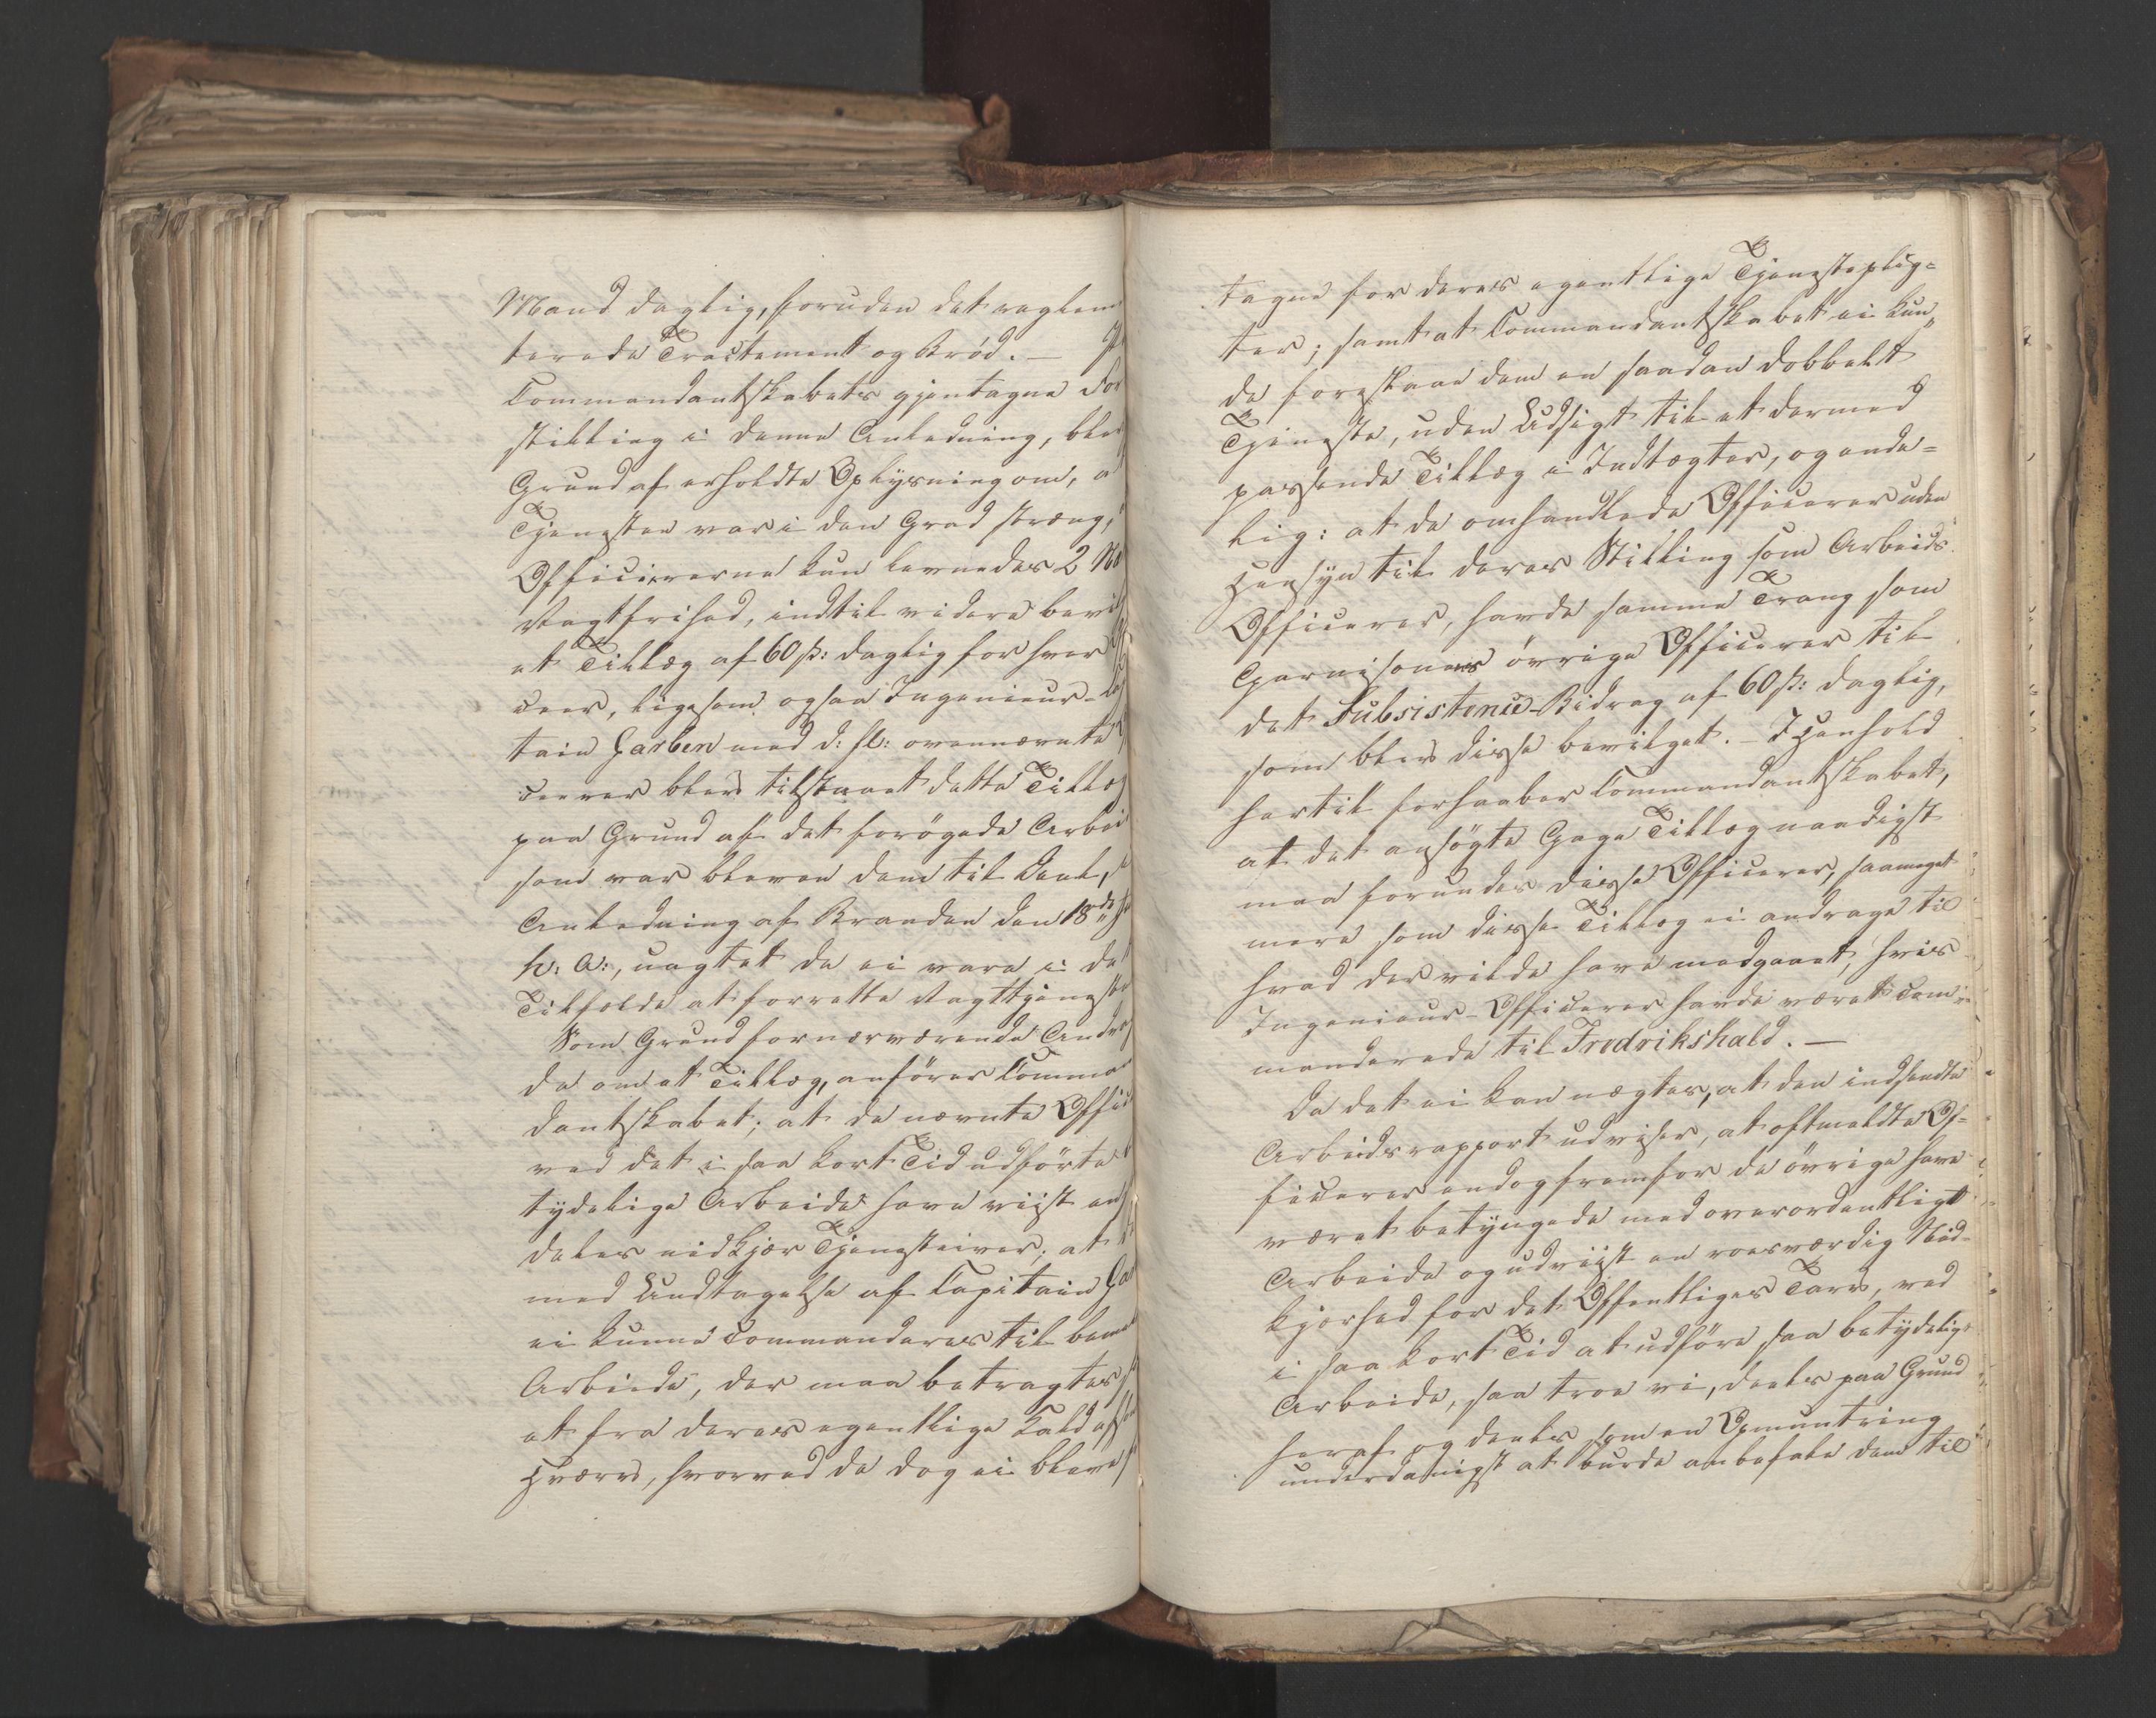 Mand daglig, foruden det reglem
terede Tractement og Brød. –
Commandantskabets gjentagne For
stilling i denne Anledning, blev
Grund af erholdte Oplysning om, a
Tjenesten var i den Grad streng,
Officiererne kun levnedes 2 
Vagtfrihed, indtil videre bevil
et Tillæg af 60 ß: daglig for hver
ceer, ligesom ogsaa Ingenieur-Cap
tain Garben med d: fl: ovennævnte
cerer blev tilstaaet dette Tillæg
paa Grund af det forøgede Arbei
som var bleven dem til Deel,
Anledning af Branden den 18de
h: A:, uagtet de ei vare i det
Tilfælde at forrette Vagttjeneste
Som Grund for nærværende Andra
de om et Tillæg, anfører Comman
dantskabet; at de nævnte Offic
ved det i saa kort Tid udførte
tydelige Arbeide have viist en
deles nidkjær Tjensteiver; at
med Undtagelse af Capitain Gar
ei kunne commanderes til bem
Arbeide, der maa betragtes
et fra deres egentlige Kald af
Hverv, hvorved de dog ei bleve
tagne for deres egentlige Tjenesteplig=
ter; samt at Commandantskabet ei kun„
de foreslaae dem en saadan dobbelt
Tjeneste, uden Udsigt til et dermed
passende Tillæg i Indtægter, og ende=
lig: at de omhandlede Officerer uden
Hensyn til deres Stilling som Arbeids
Officerer, havde samme Trang som
Garnisonens øvrige Officerer til
det Subsistence-Bidrag af 60 ß: daglig,
som blev disse bevilget. – I Henhold
hertil forhaaber Commandantskabet,
at det ansøgte Gage Tillæg naadigst
maa forundes disse Officerer, saameget
mere som disse Tillæg ei andrage til
hvad der vilde have medgaaet, hvis
Ingenieur-Officerer havde været com
manderede til Fredrikshald. –
Da det ei kan nægtes, at den indsendte
Arbeidsrapport udviser, at oftmeldte Of=
ficerer endog fremfor de øvrige have
været betyngede med overordentligt
Arbeide og udviist en roesværdig Nid=
kjærhed for det Offentliges Tarv, ved
i saa kort Tid at udføre saa betydelig
Arbeide, saa troe vi, deels paa Grund
heraf og deels som en Opmuntring
underdanigst at burde anbefale dem til